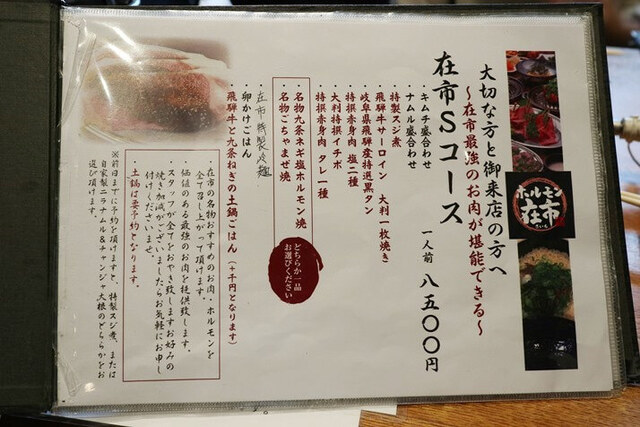 大切な方と御来店の方へ
～在市最強のお肉が堪能できる～
在市Sコース
一人前 八五〇〇円
・キムチ盛合わせ
・ナムル盛合わせ
・特製スジ煮
・飛騨牛サーロイン 大判一枚焼き
・岐阜県飛騨産特選黒タン
・特撰赤身肉 塩二種
・大判特撰イチボ
・特撰赤身肉 タレ一種
・名物九条ネギ塩ホルモン焼
・名物ごちゃまぜ焼
どちらか一品
お選びください
・在市特製冷麺
・卵かけごはん
・飛騨牛と九条ねぎの土鍋ごはん（＋千円となります）
・在市の名物おすすめのお肉・ホルモンを
全て召し上がって頂けます。
・価値のある最強のお肉を提供致します。
・スタッフが全てをおやき致しますお好みの
焼き加減がございましたらお気軽にお申し
付けくださいませ。
・土鍋は要予約となります。
※前日までに予約を頂けますと、特製スジ煮、または
自家製ニラナムル＆チャンジャ大根のどちらかをお
選び頂けます。
ホルモン
在市
ざいち